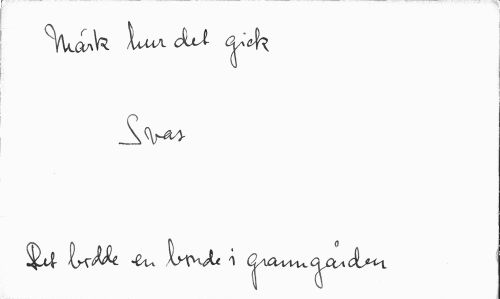 Märk hur det gick
Svar
Det bodde en bonde i granngården